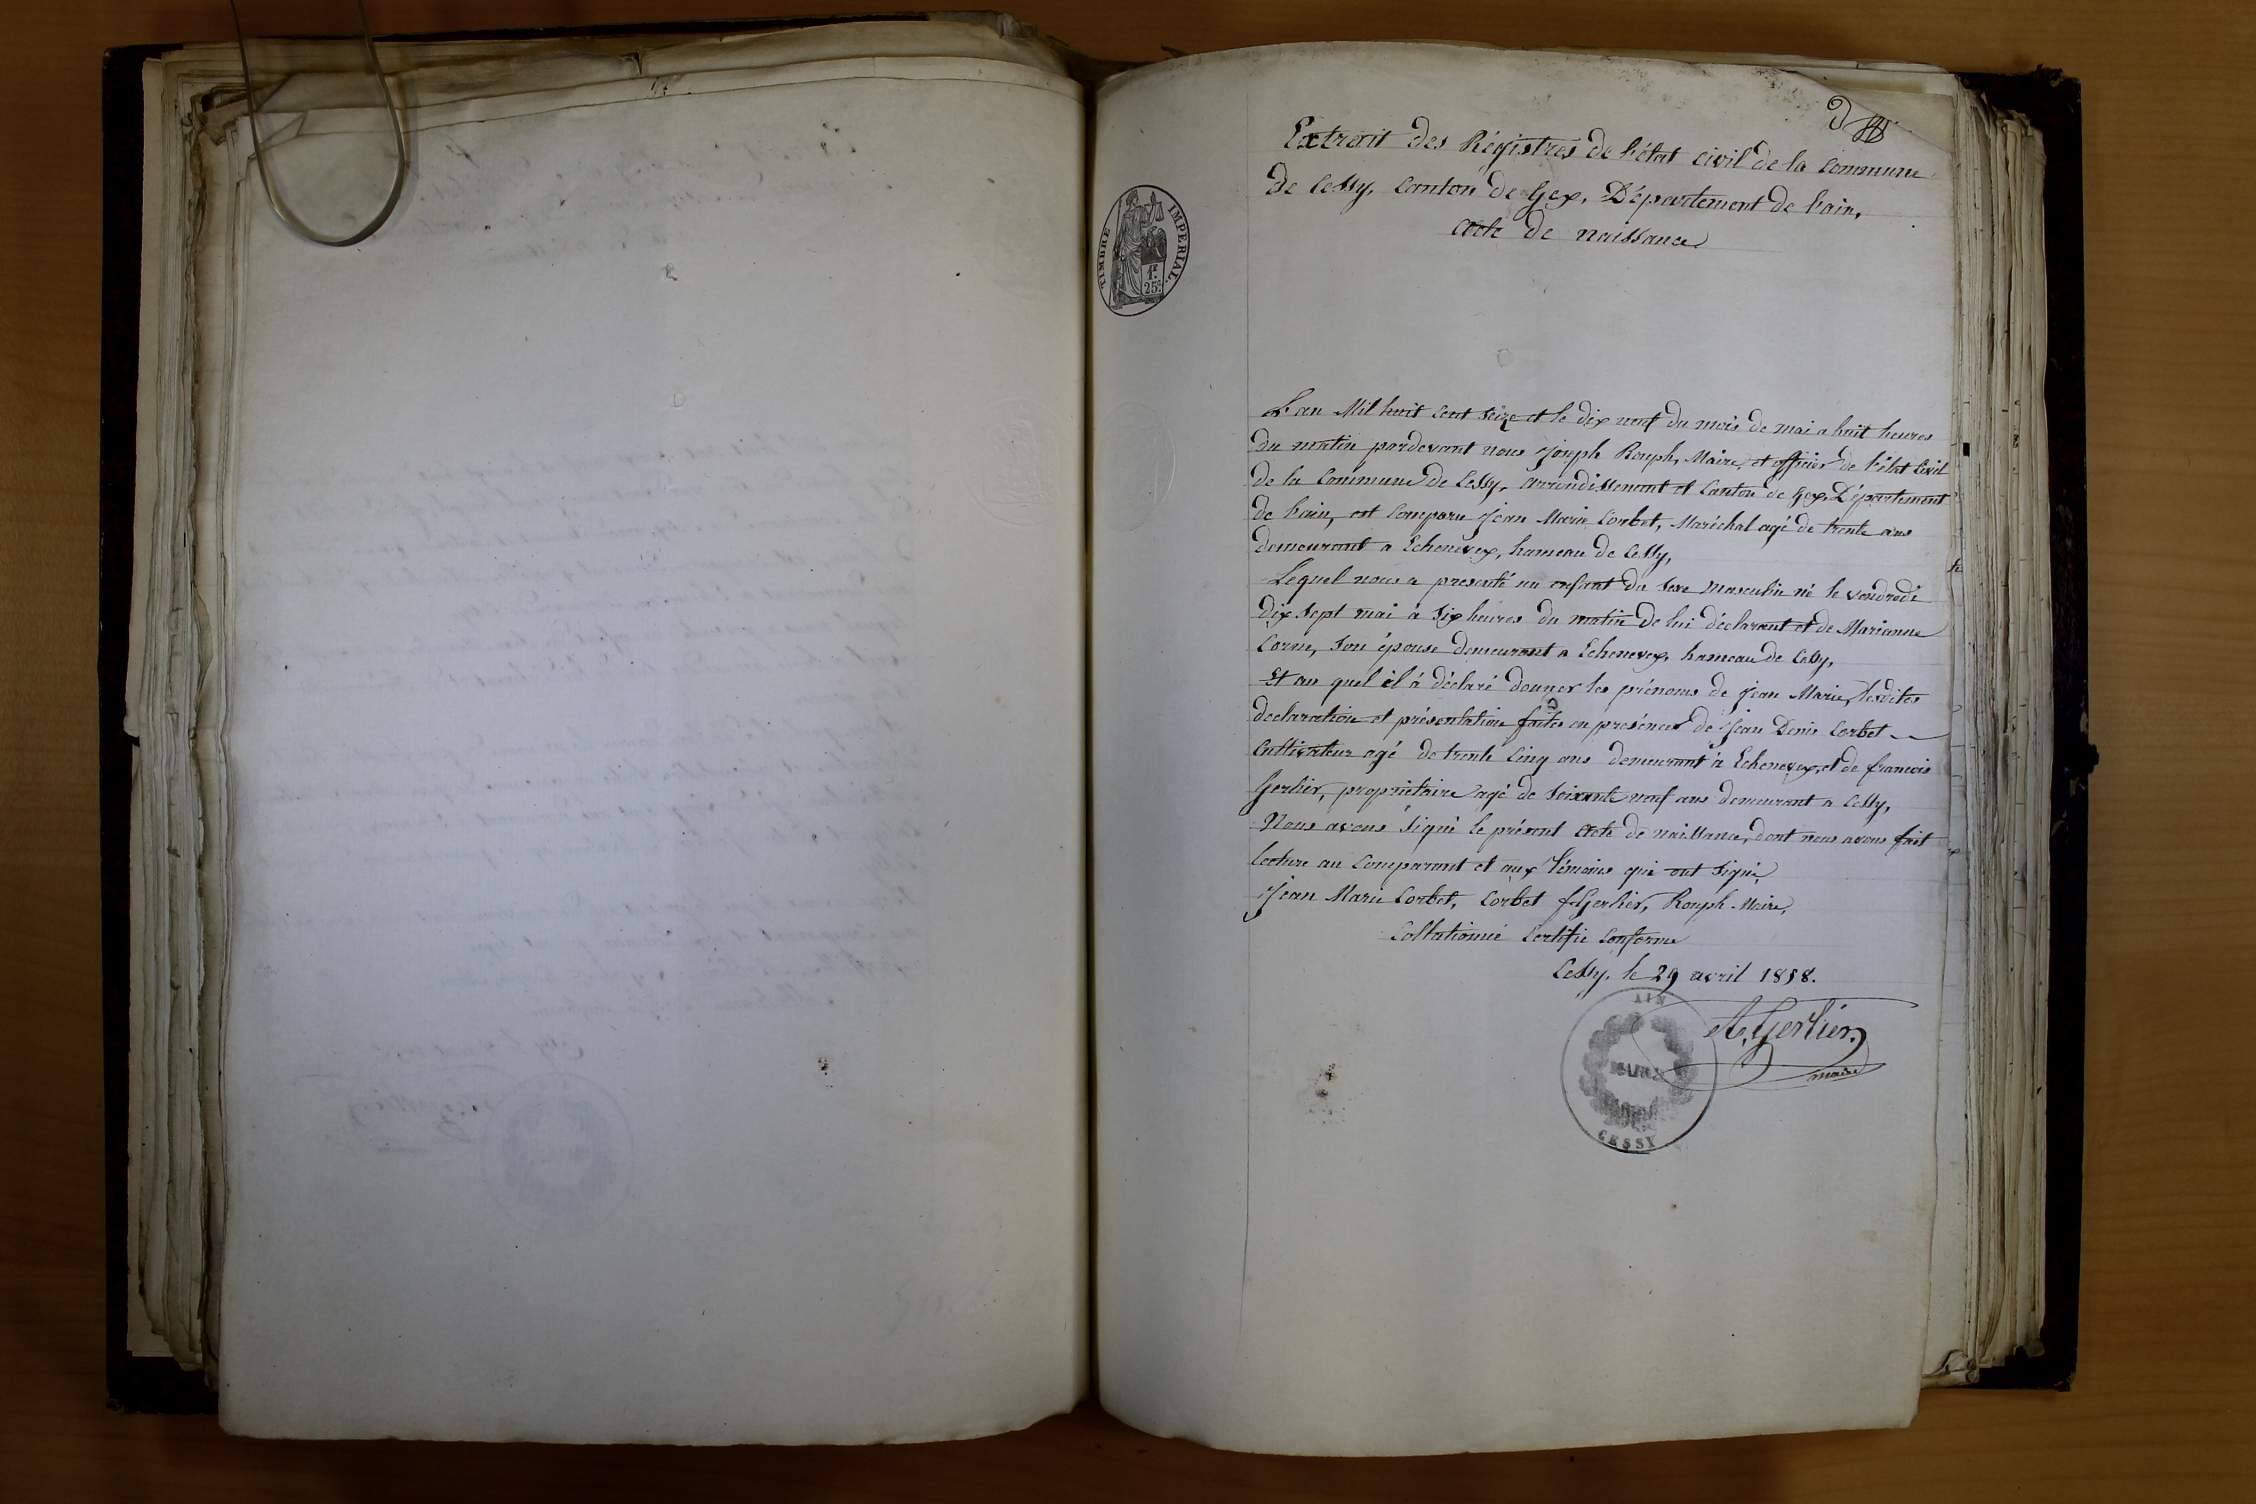 Extrait des Régistres de l'état civil de la commune
de Cessy, Canton de Gex, Département de l'ain,
acte de naissance
TIMBRE IMPERIAL
1F.
25C.
L'an Mil huit cent seize et le dix neuf du mois de mai a huit heures
du matin pardevant nous joseph Rouph, Maire, et officier de l'état Civil
de la Commune de Cessy, arrondissement et Canton de Gex, Département
de l'ain, est Comparu Jean Marie Corbet, Maréchal agé de trente ans
demeurant a Echenevex, hameau de Cessy,
Lequel nous a presenté un enfant du sexe masculin né le vendredi
dix sept mai à six heures du matin de lui déclarant et de Marianne
Corne, son épouse demeurant a Echenevex, hameau de Cessy,
Et au quel il à déclaré donner les prénoms de Jean Marie, lesdites
declaration et présentation faites en présence de Jean Denis Corbet
Cultivateur agé de trente Cinq ans demeurant à Echenevex, et de francois
Gerlier, propriétaire agé de soixante neuf ans demeurant a Cessy,
Nous avons signé le présent acte de naissance, dont nous avons fait
lecture au Comparant et aux témoins qui ont signé,
Jean Marie Corbet, Corbet f. Gerlier, Rouph Maire,
Collationné Certifié Conforme
Cessy, le 29 avril 1858.
A. Gerlier
maire
AIN
MAIRIE
CESSY